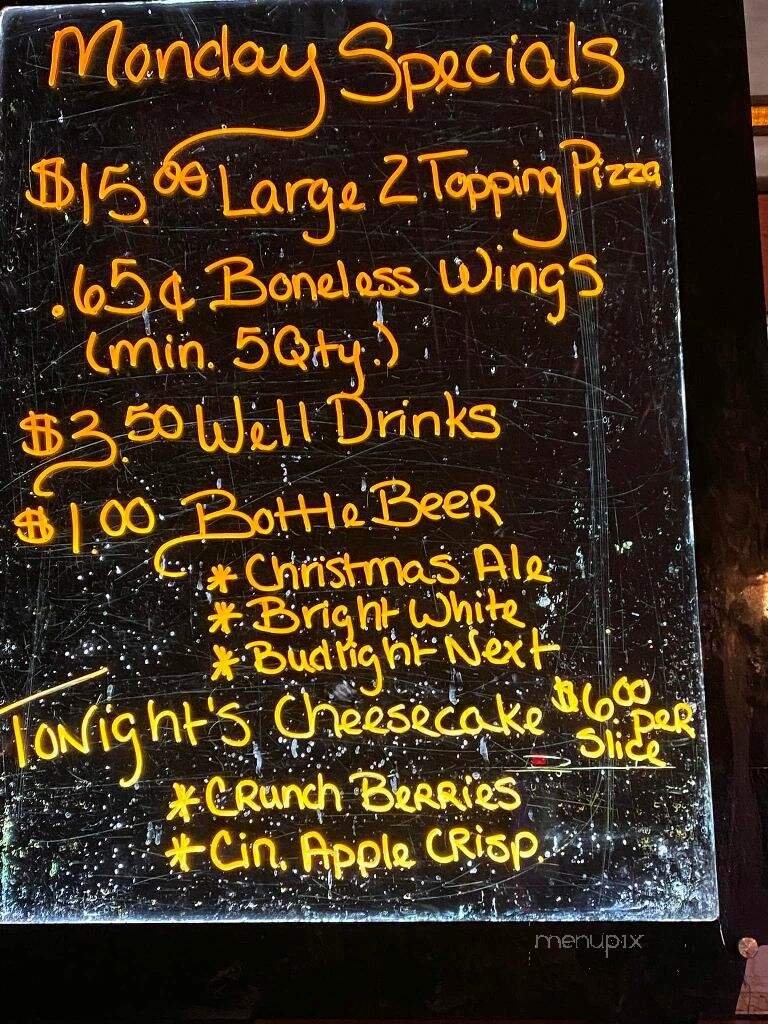 Monday Specials
$15.00 Large 2 Topping Pizza
.65¢ Boneless Wings
(min. 5 Qty.)
$3.50 Well Drinks
$1.00 Bottle Beer
* Christmas Ale
* Bright White
* Budlight Next
Tonight's Cheesecake $6.00 per
slice
* Crunch Berries
* Cin. Apple Crisp.
menupix